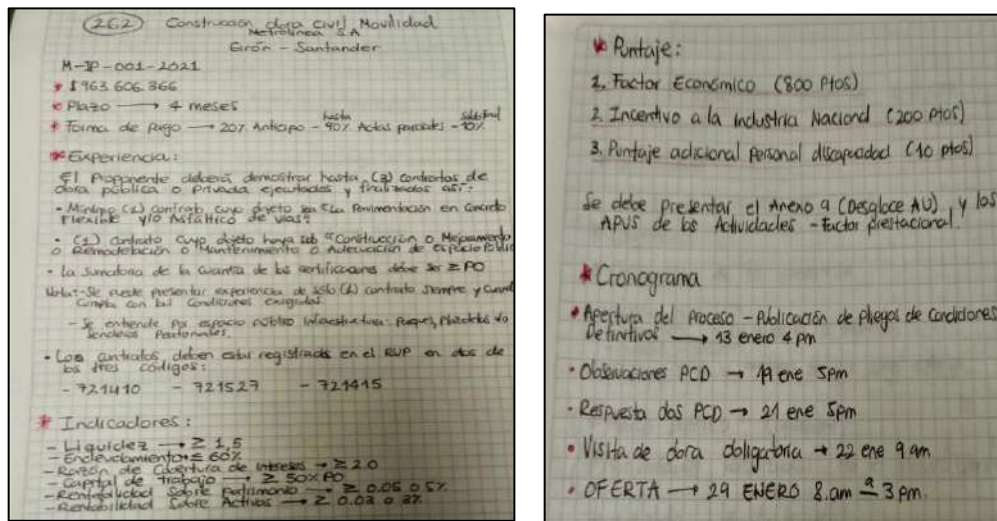 262 Construcción obra civil Movilidad
Metrolínea S.A
Girón - Santander
M-IP-001-2021
$963.606.366
Plazo → 4 meses
Forma de pago → 20% Anticipo - hasta 40% Actas parciales - 10%
Experiencia:
El Proponente deberá demostrar hasta (3) contratos de
obra pública o Privada ejecutados y finalizados así:
- Mínimo (1) contrato cuyo objeto sea "La Pavimentación en Concreto
Flexible y/o Asfáltico de vias"
- (1) contrato cuyo objeto haya sido "Construcción o Mejoramiento
o Remodelación o Mantenimiento o Adecuación de Espacio Público
• La sumatoria de la cuantía de las certificaciones debe ser ≥ PO
Nota: - Se puede presentar experiencia de solo (1) contrato siempre y cuando
cumpla con las condiciones exigidas.
- Se entiende por espacio público infraestructura: parques, plazoletas y/o
senderos Peatonales.
• Los contratos deben estar registrados en el RUP en dos de
los tres códigos:
- 721410 - 721527 - 721415
Indicadores:
- Liquidez → ≥ 1,5
- Endeudamiento ≤ 60%
- Razón de Cobertura de intereses → ≥ 2.0
- Capital de trabajo → ≥ 50% PO
- Rentabilidad Sobre Patrimonio → ≥ 0.05 o 5%
- Rentabilidad Sobre Activos → ≥ 0.03 o 3%
Puntaje:
1. Factor Económico (800 Ptos)
2. Incentivo a la industria Nacional (200 ptos)
3. Puntaje adicional personal discapacidad (10 ptos)
Se debe presentar el Anexo 9 (Desgloce AU), y los
APUS de las Actividades - Factor prestacional.
Cronograma
• Apertura del proceso - Publicación de Pliegos de Condiciones
Definitivos → 13 enero 4 pm
• Observaciones PCD → 19 ene 5pm
• Respuesta obs PCD → 21 ene 5pm
• Visita de obra obligatoria → 22 ene 9 am
• OFERTA → 29 ENERO 8.am a 3 pm.